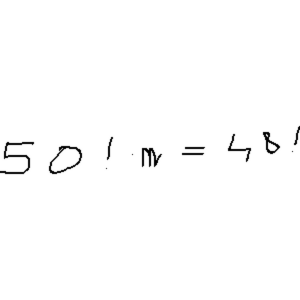 50! m = 48!